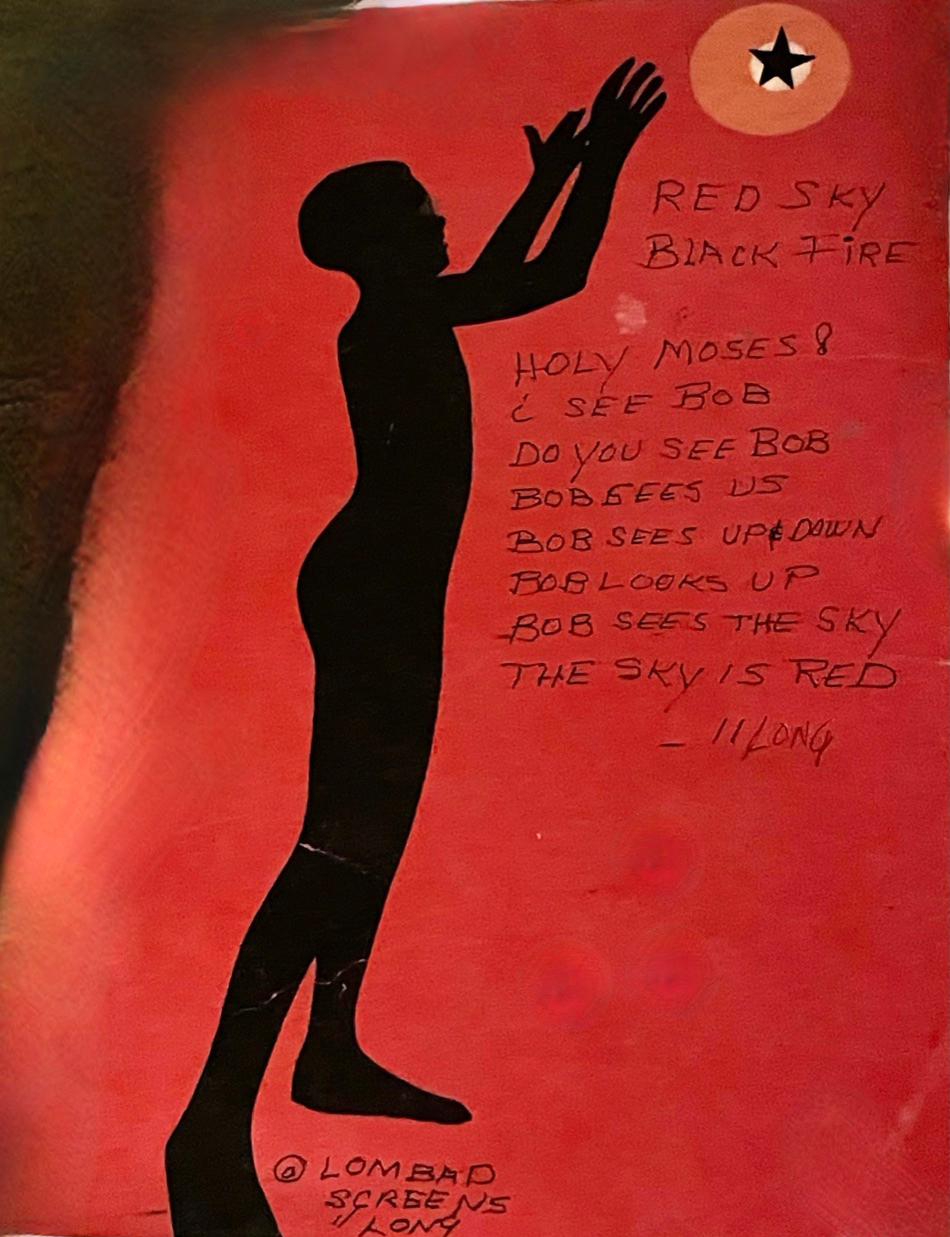 RED SKY
BLACK FiRE
HOLY MOSES!
¿ SEE BOB
DO YOU SEE BOB
BOB SEES US
BOB SEES UP & DOWN
BOB LOOKS UP
BOB SEES THE SKY
THE SKY IS RED
— //LONG
@ LOMBAD
SCREENS
//LONG